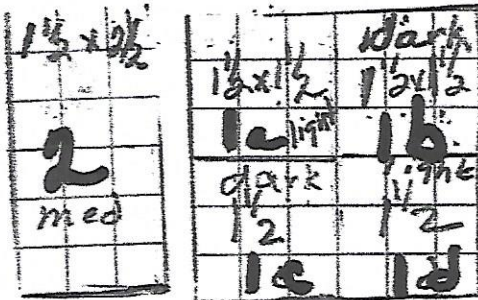 1 1/2 x 2 1/2
2
med
1 1/2 x 1 1/2
1a light
dark
1 1/2 x 1 1/2
1b
dark
1 1/2
1c
light
1 1/2
1d